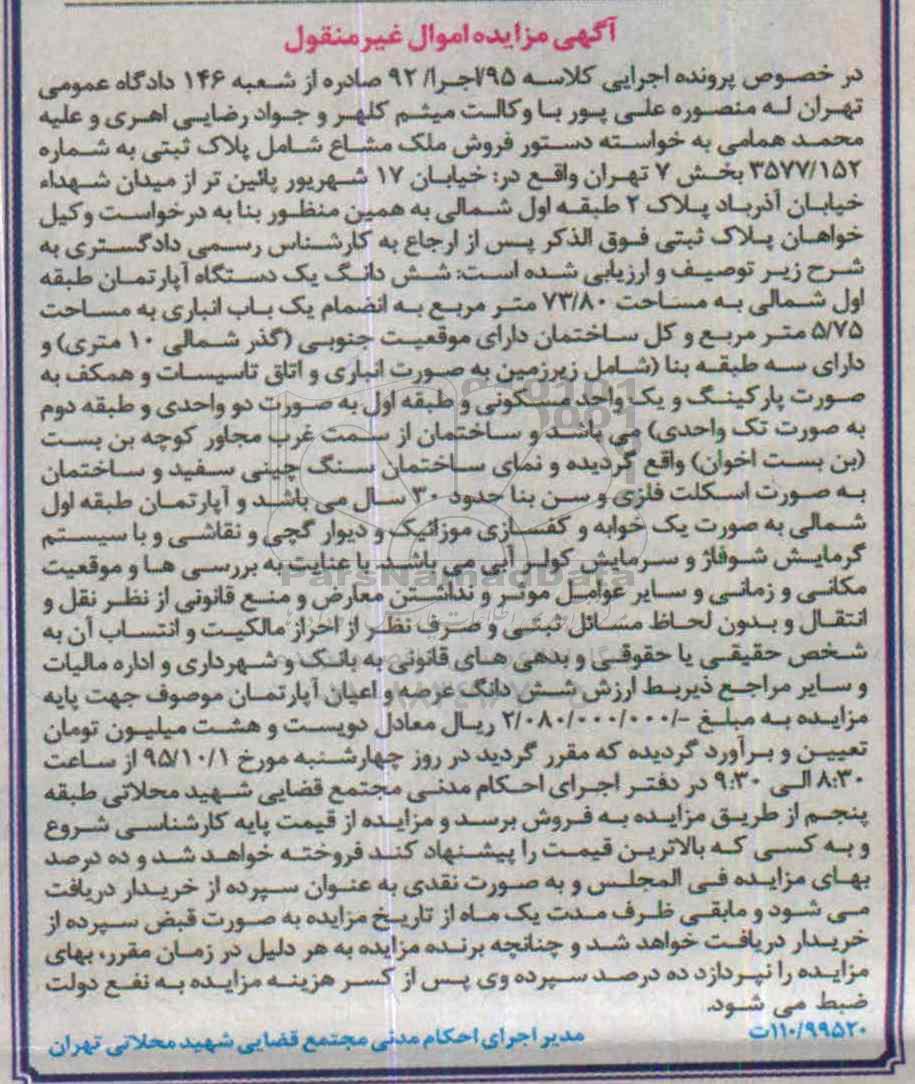 آگهی مزایده اموال غیر منقول
در خصوص پرونده اجرایی کلاسه ۹۵/اجرا/ ۹۲ صادره از شعبه ۱۴۶ دادگاه عمومی
تهران له منصوره علی پور با وکالت میثم کلهر و جواد رضایی اهری و علیه
محمد همامی به خواسته دستور فروش ملک مشاع شامل پلاک ثبتی به شماره
۳۵۷۷/۱۵۲ بخش ۷ تهران واقع در: خیابان ۱۷ شهریور پائین تر از میدان شهداء
خیابان آذرباد پلاک ۲ طبقه اول شمالی به همین منظور بنا به درخواست وکیل
خواهان پلاک ثبتی فوق الذکر پس از ارجاع به کارشناس رسمی دادگستری به
شرح زیر توصیف و ارزیابی شده است: شش دانگ یک دستگاه آپارتمان طبقه
اول شمالی به مساحت ۷۳/۸۰ متر مربع به انضمام یک باب انباری به مساحت
۵/۷۵ متر مربع و کل ساختمان دارای موقعیت جنوبی (گذر شمالی ۱۰ متری) و
دارای سه طبقه بنا (شامل زیرزمین به صورت انباری و اتاق تاسیسات و همکف به
صورت پارکینگ و یک واحد مسکونی و طبقه اول به صورت دو واحدی و طبقه دوم
به صورت تک واحدی) می باشد و ساختمان از سمت غرب مجاور کوچه بن بست
(بن بست اخوان) واقع گردیده و نمای ساختمان سنگ چینی سفید و ساختمان
به صورت اسکلت فلزی و سن بنا حدود ۳۰ سال می باشد و آپارتمان طبقه اول
شمالی به صورت یک خوابه و کفسازی موزائیک و دیوار گچی و نقاشی و با سیستم
گرمایش شوفاژ و سرمایش کولر آبی می باشد. با عنایت به بررسی ها و موقعیت
مکانی و زمانی و سایر عوامل موثر و نداشتن معارض و منع قانونی از نظر نقل و
انتقال و بدون لحاظ مسائل ثبتی و صرف نظر از احراز مالکیت و انتساب آن به
شخص حقیقی یا حقوقی و بدهی های قانونی به بانک و شهرداری و اداره مالیات
و سایر مراجع ذیربط ارزش شش دانگ عرصه و اعیان آپارتمان موصوف جهت پایه
مزایده به مبلغ -/۲/۰۸۰/۰۰۰/۰۰۰ ریال معادل دویست و هشت میلیون تومان
تعیین و برآورد گردیده که مقرر گردید در روز چهارشنبه مورخ ۹۵/۱۰/۱ از ساعت
۸:۳۰ الی ۹:۳۰ در دفتر اجرای احکام مدنی مجتمع قضایی شهید محلاتی طبقه
پنجم از طریق مزایده به فروش برسد و مزایده از قیمت پایه کارشناسی شروع
و به کسی که بالاترین قیمت را پیشنهاد کند فروخته خواهد شد و ده درصد
بهای مزایده فی المجلس و به صورت نقدی به عنوان سپرده از خریدار دریافت
می شود و مابقی ظرف مدت یک ماه از تاریخ مزایده به صورت قبض سپرده از
خریدار دریافت خواهد شد و چنانچه برنده مزایده به هر دلیل در زمان مقرر، بهای
مزایده را نپردازد ده درصد سپرده وی پس از کسر هزینه مزایده به نفع دولت
ضبط می شود.
۱۱۰/۹۹۵۲۰ت
مدیر اجرای احکام مدنی مجتمع قضایی شهید محلاتی تهران
ParsNamadData